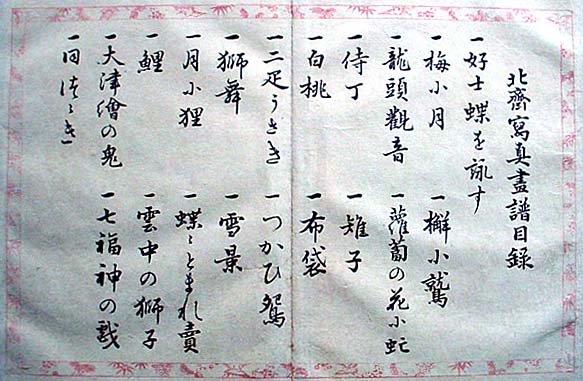 北齋寫真畫譜目録
一好士蝶を詠す
一梅小月 一檞小鷲
一龍頭觀音 一蘿蔔の花小虻
一侍丁 一雉子
一白桃 一布袋
一二疋うさき 一つかひ鴛
一獅舞 一雪景
一月小狸 一蝶〻とまれ賣
一鯉 一雲中の獅子
一大津繪の鬼 一七福神の戯
一同